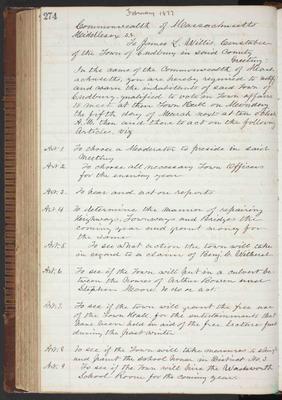 274
February 1877
Commonwealth of Massachusetts
Middlesex ss.
To James L. Willis Constable
of the Town of Sudbury in said County
Greeting
In the name of the Commonwealth of Mass-
achusetts, you are hereby required to notify
and warn the inhabitants of said Town of
Sudbury qualified to vote in Town affairs
to meet at their Town Hall on Monday,
the fifth day of March next at ten o'clock
A.M. then and there to act on the following
Articles, viz
Art. 1. To choose a Moderator to preside in said
Meeting
Art. 2. To choose all necessary Town Officers
for the ensuing year
Art. 3. To hear and act on reports
Art. 4. To determine the manner of repairing
Highways, Townways and Bridges the
coming year and grant money for
the same
Art. 5. To see what action the town will take
in regard to a claim of Benj.
Art. 6. To see if the Town will put in a culvert be
tween the houses of Arthur Bowen and
Stephen Moore, or do or act
Art. 7. To see if the town will grant the free use
of the Town Hall, for the entertainments that
have been held in aid of the free Lecture fund
during the past winter
Art. 8 To see if the Town will take measures to
and paint the School House in District No. 3
Art. 9 To see if the Town will hire the Wadsworth
School Room for the coming year